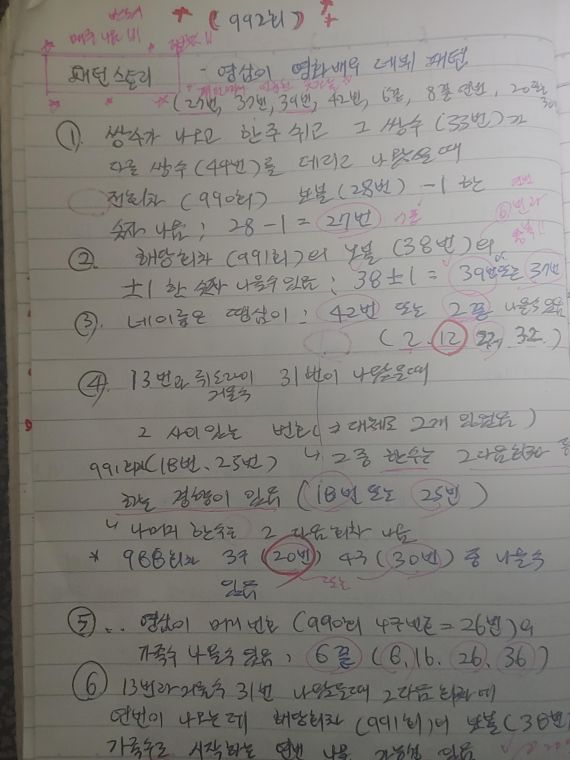 (992회)
매주 나옴!!
패턴스토리 - 영심이 영화배우 데뷔 패턴
(27번, 37번, 39번, 42번, 6끝, 8끝 연번, 20
30
① 쌍수가 나오고 한주 쉬고 그 쌍수 (33번)가
다른 쌍수 (44번)를 데리고 나왔을때
전회차 (990회) 보볼 (28번) -1 한
숫자 나옴 ; 28-1 = 27번
② 해당회차 (991회)의 보볼 (38번)의
±1 한 숫자 나올수있음 ; 38±1 = 39번또는 37번
③ 네이름은 영심이 ; 42번 또는 2끝 나올수있음
(2. 12 22, 32)
④ 13번과 31번이 나왔을때
거울수
2 사이 있는 번호 (⇒ 대체로 2개 있었음)
991회차 (18번, 25번) ↳ 그중 한수는 그다음회차
하는 경향이 있음 (18번 또는 25번)
↳ 나머지 한수는 2 다음회차 나옴
* 988회차 3구 (20번) 4구 (30번) 중 나올수
있음 또는
⑤ 영심이 머리 번호 (990회 4구번호 = 26번)의
가족수 나올수 있음, 6끝 (6, 16. 26. 36)
⑥ 13번과 거울수 31번 나왔을때 2다음회차때
연번이 나오는데 해당회차 (991회)의 보볼 (38번)
가족수로 시작하는 연번 나올 가능성 있음